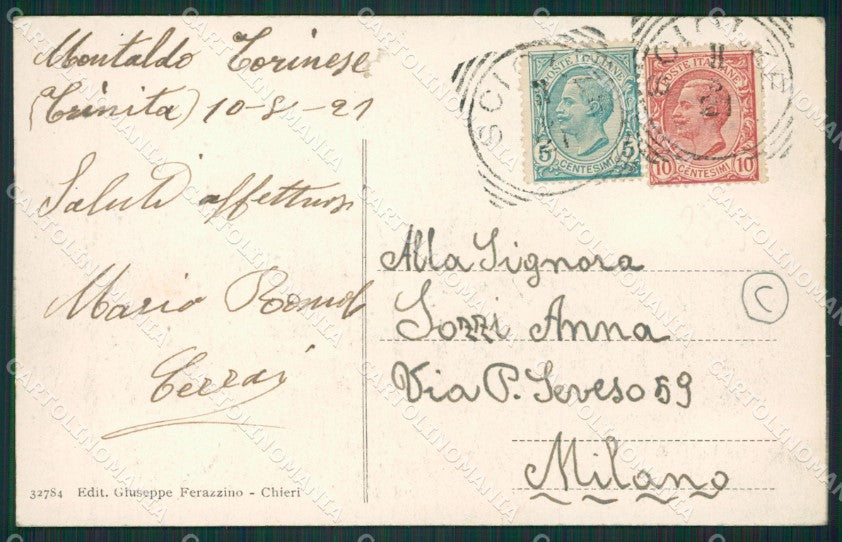 Montaldo Torinese
(Trinita) 10-8-921
Saluti affettuosi
Mario
32784 Edit. Giuseppe Ferazzino - Chieri
POSTE ITALIANE
5 CENTESIMI 5
POSTE ITALIANE
10 CENTESIMI 10
SCIOLZE
Alla Signora
Sozzi Anna
Via P. Seveso 59
Milano
C
CARTOLINOMANIA